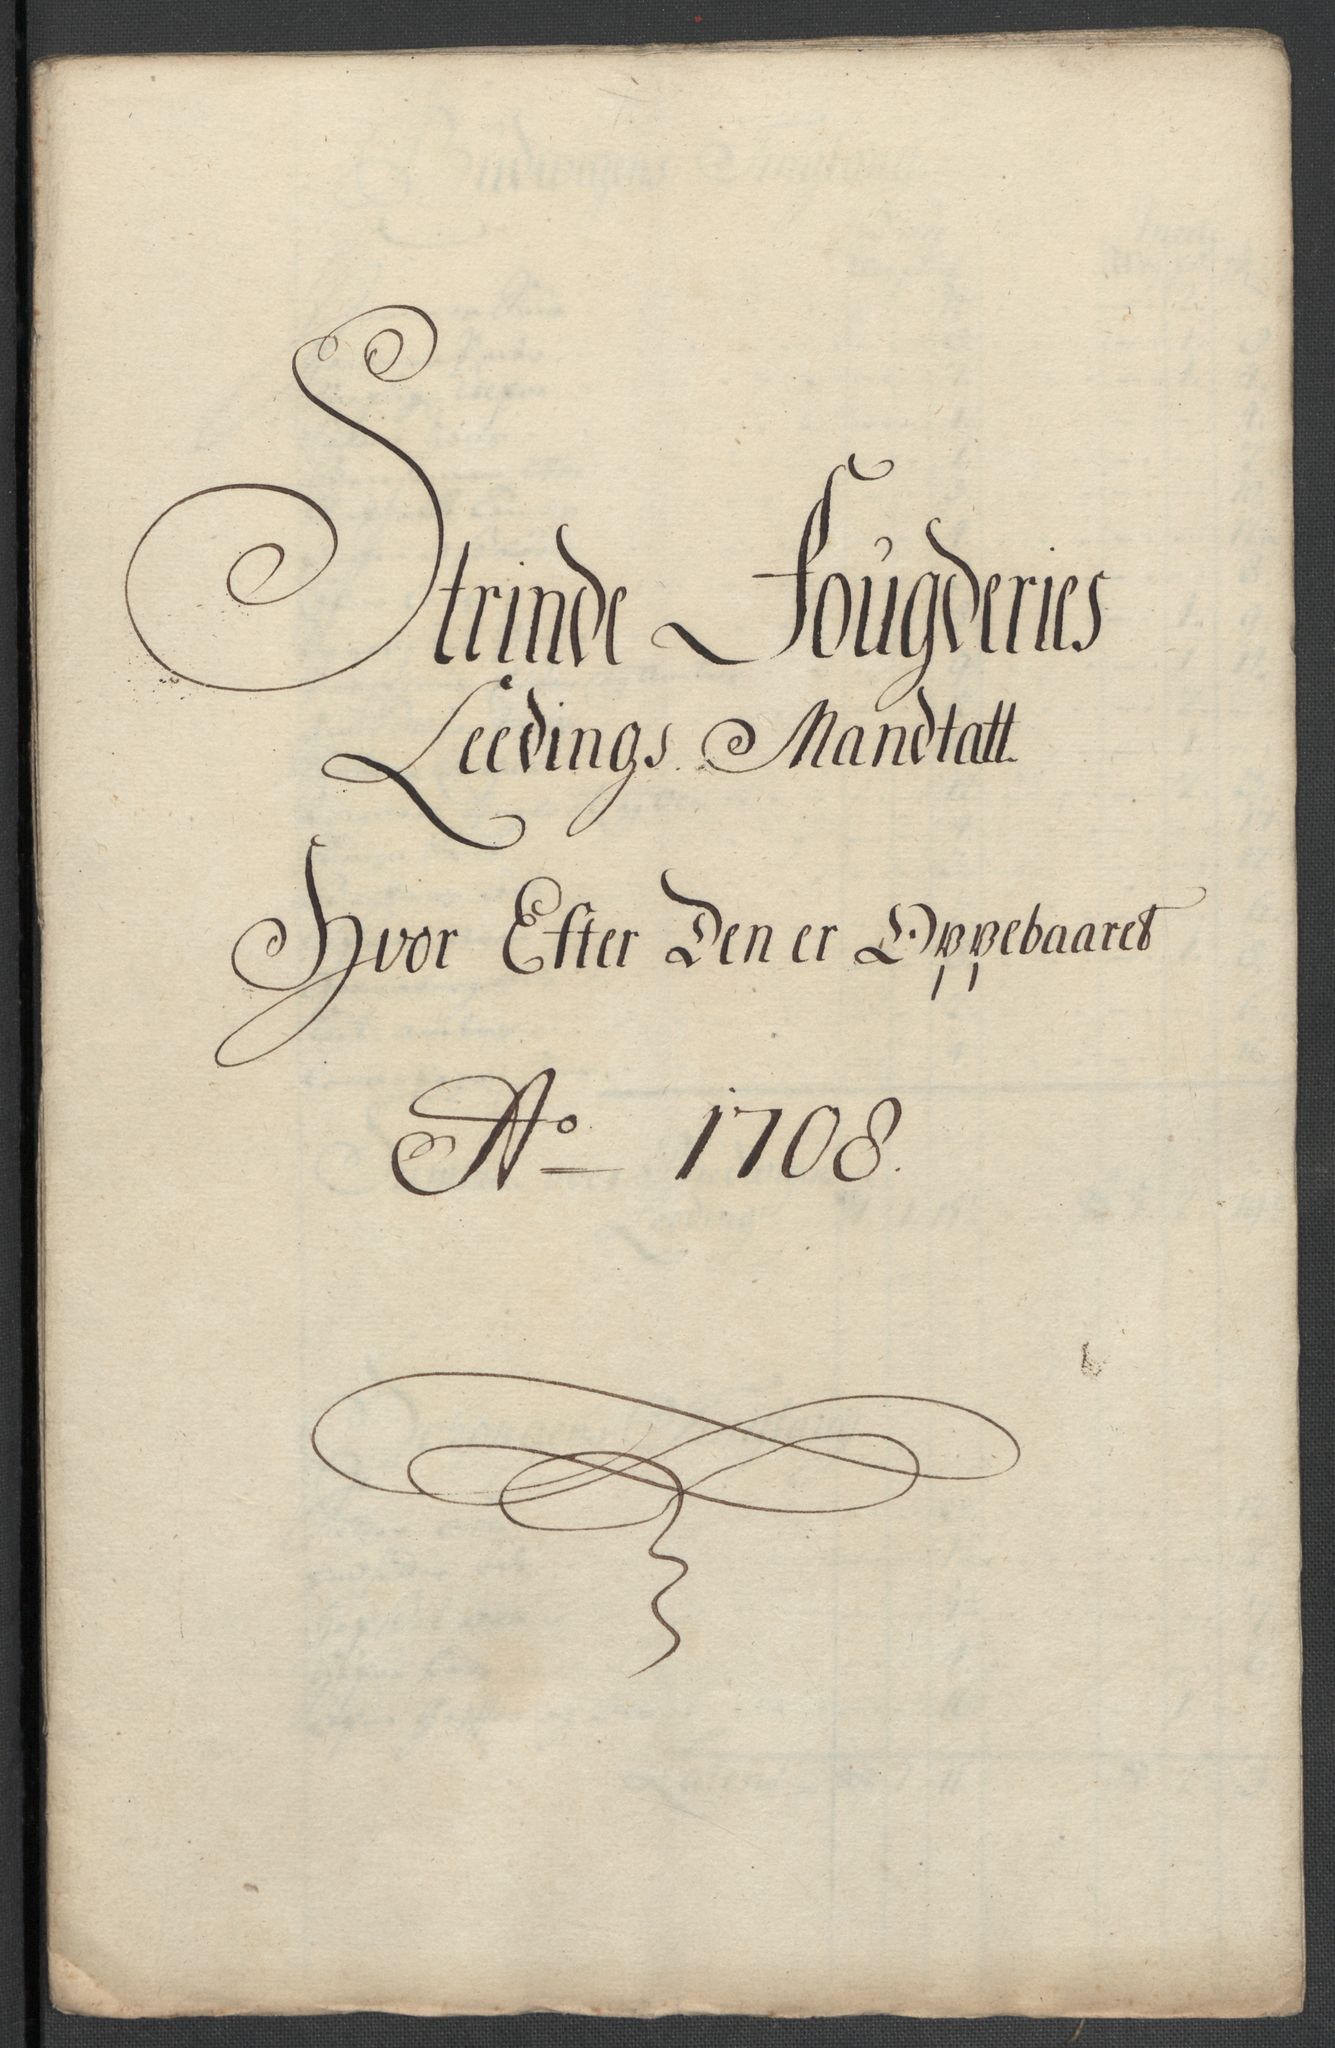 Strinde Fougderies
Leedings Mandtatt.
Hvor Efter Den er Oppebaaret
Ao 1708.